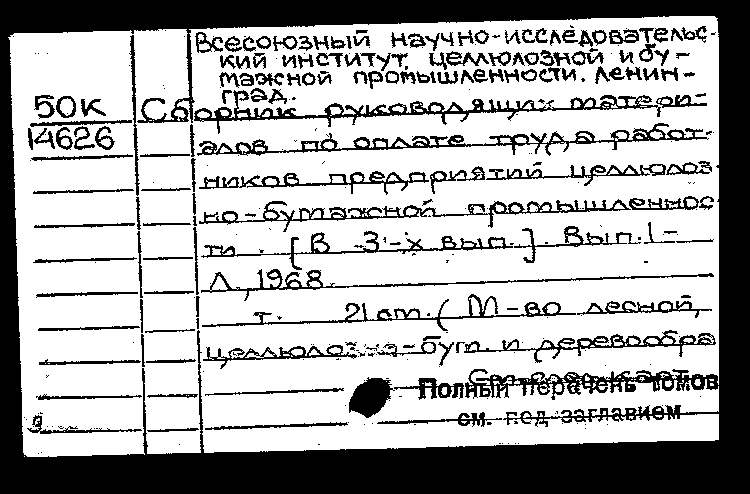 Всесоюзный научно-исследовательс-
кий институт целлюлозной и бу-
мажной промышленности. Ленин-
град.
50К Сборник руководящих матери-
14626 алов по оплате труда работ-
ников предприятий целлюлоз-
но-бумажной промышленнос-
ти. [В 3-х вып.]. Вып. 1-
Л., 1968.
т. 21 см. (М-во лесной,
целлюлозно-бум. и деревообра
См. след. карт.
Полный перечень томов
см. под заглавием